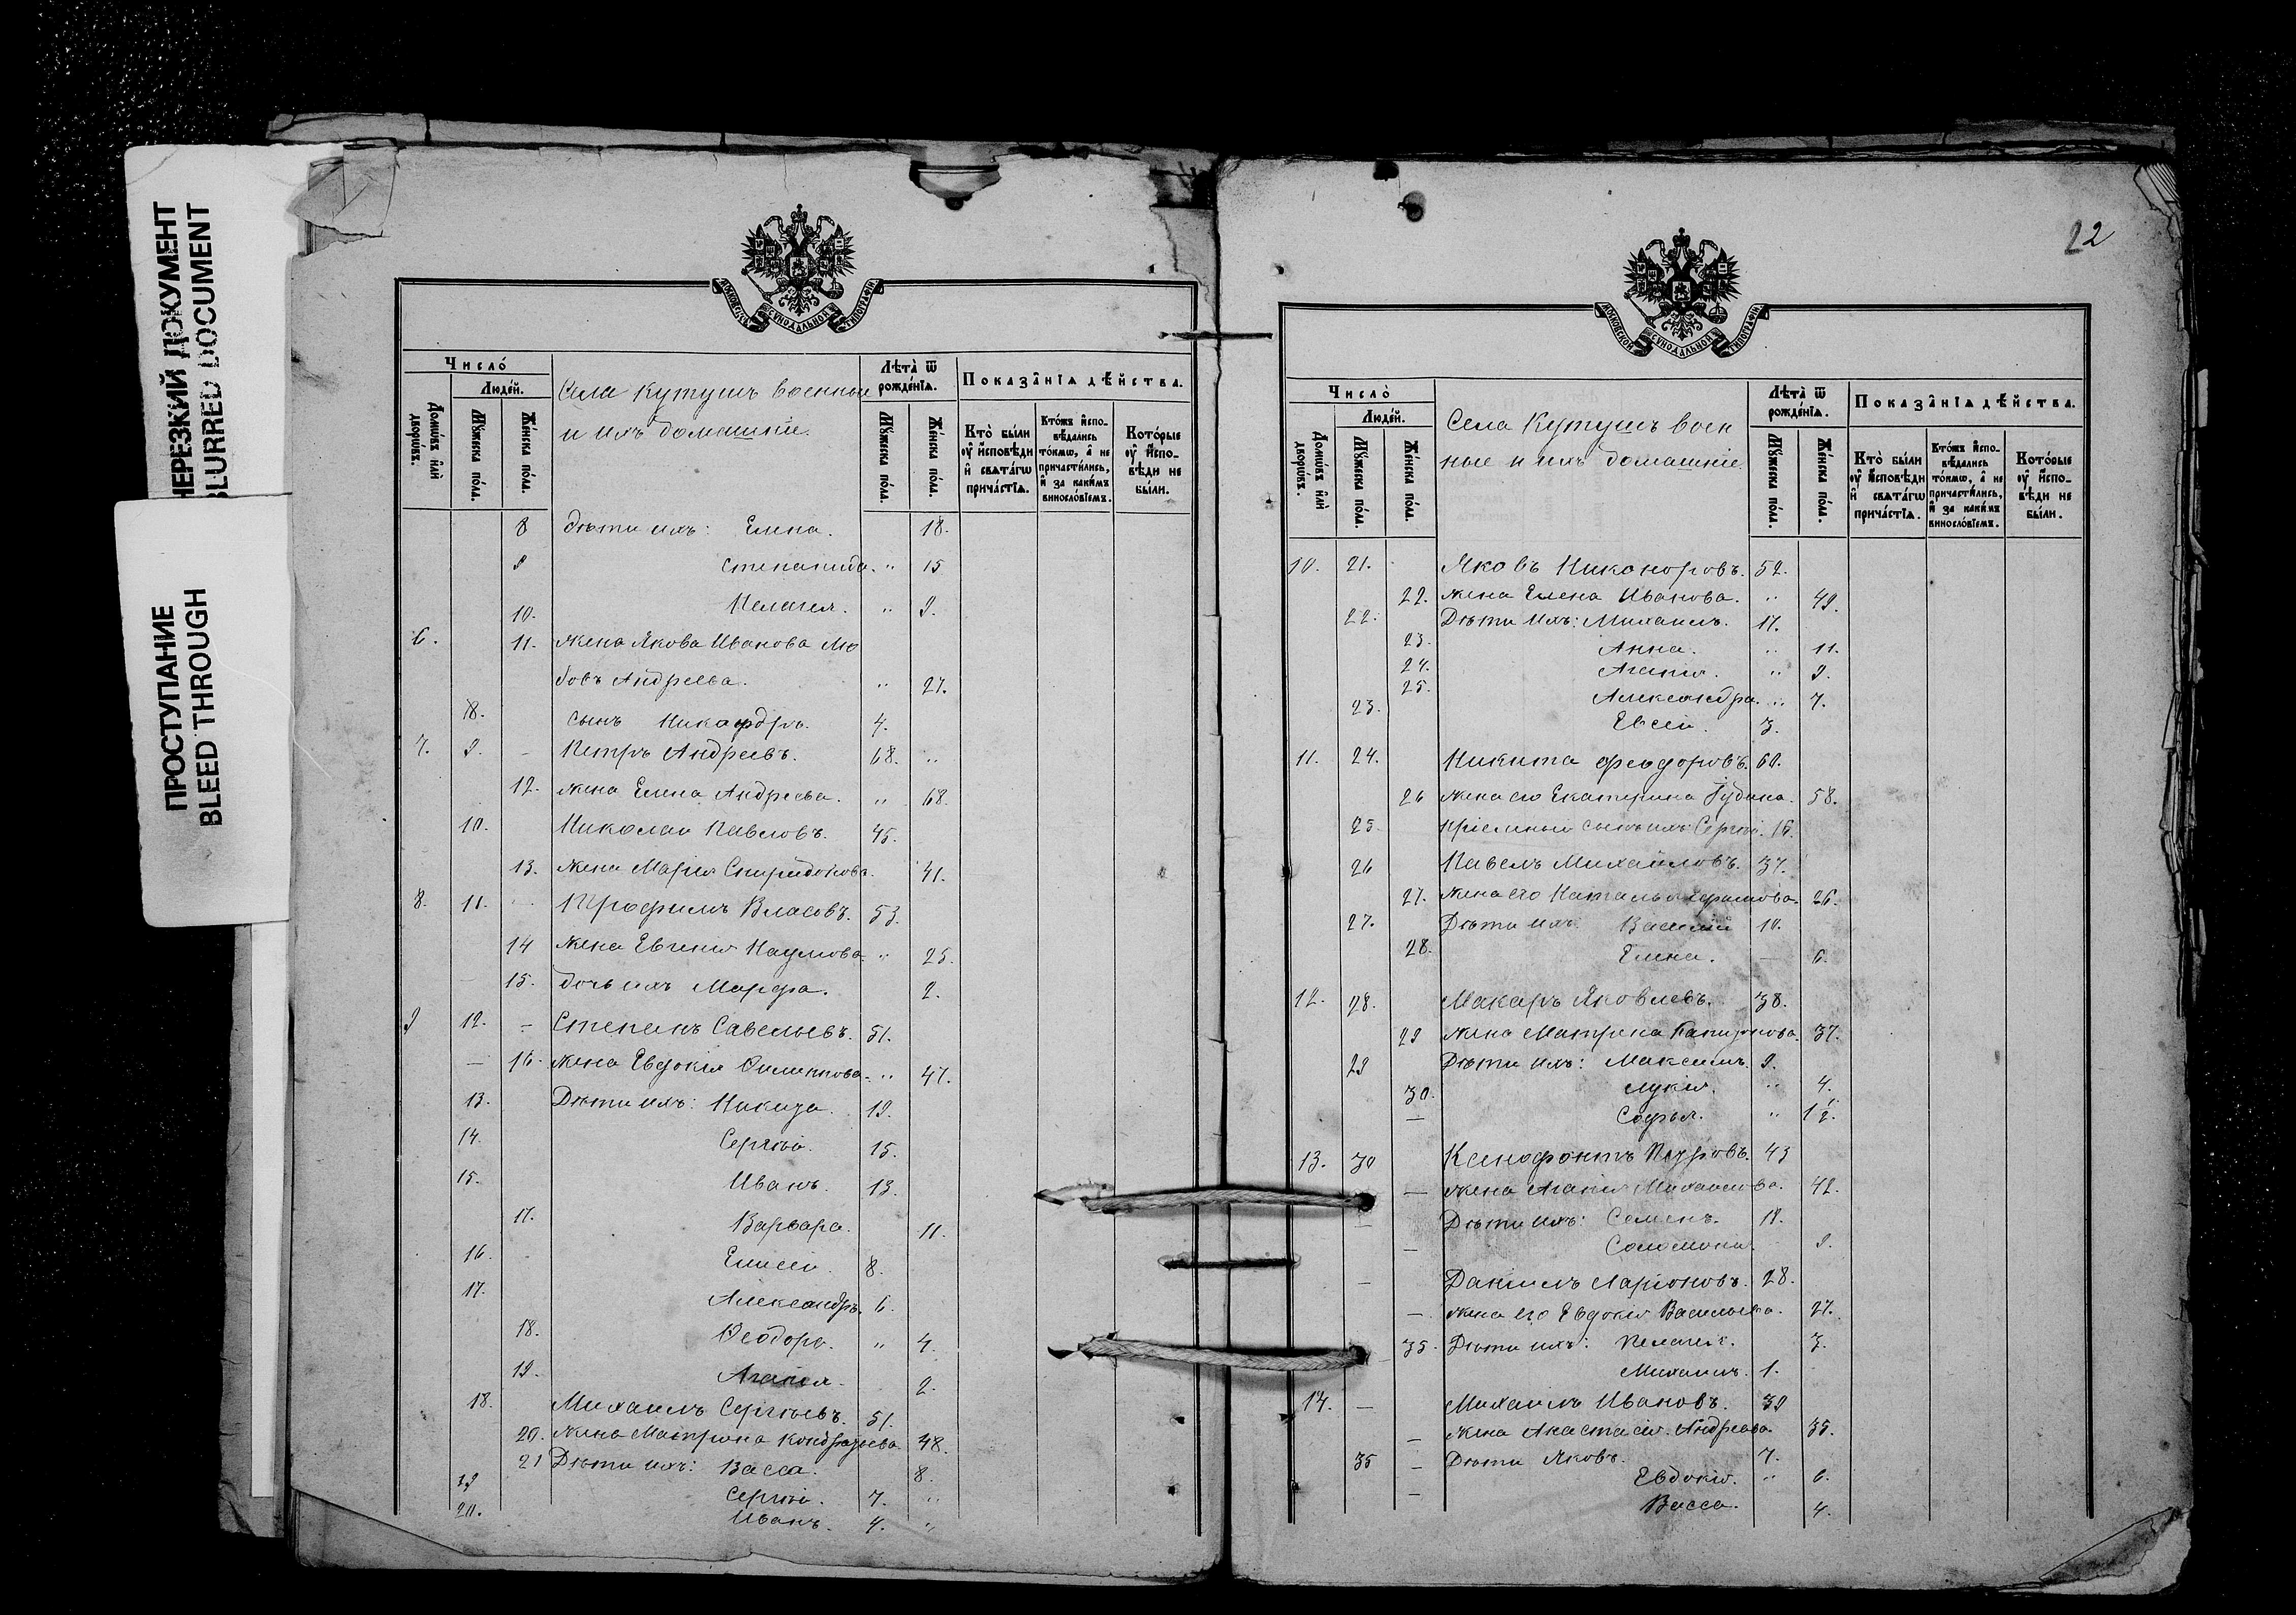 НЕРЕЗКИЙ ДОКУМЕНТ
BLURRED DOCUMENT
ПРОСТУПАНИЕ
BLEED THROUGH
МОСКОВСКОЙ СѴНОДАЛЬНОЙ ТИПОГРАФІИ
Число
Людей.
Домовъ или дворовъ.
Мужеска пола.
Женска пола.
Села Кутушъ военные
и ихъ домашніе.
Лѣта ѿ рожденїѧ.
Мужеска пола.
Женска пола.
Показанїѧ дѣйства.
Кто были оу исповѣди и свѧтагѡ причастїѧ.
Ктожъ исповѣдались токмѡ, а не причастились, и за какимъ винословїемъ.
Которые оу исповѣди не были.
8 Дѣти ихъ: Елена. 18.
9 Степанида. " 15
10. Пелагея. " 9.
6. 11. Жена Якова Иванова Лю
бовь Андреева. " 27.
8. сынъ Никандръ. 4.
7. 9. – Петръ Андреевъ. 68. "
12. Жена Елена Андреева. " 68.
10. Николай Павловъ. 45.
13. Жена Марія Спиридонова. 41.
8. 11. Трофимъ Власовъ. 53.
14 Жена Евгенія Наумова " 25.
15. дочь ихъ Марфа. 2.
9 12. – Степанъ Савельевъ. 51.
– 16. Жена Евдокія Филиппова " 47.
13. Дѣти ихъ: Никита. 19.
14. Сергѣй. 15.
15. Иванъ. 13.
17. Варвара. 11.
16. Елисей. 8.
17. Александръ. 6.
18. Ѳеодора. " 4.
19. Агапія. 2.
18. Михаилъ Сергѣевъ. 51.
20. Жена Матрона Кондратьева 48.
21 Дѣти ихъ: Васса. 8.
19 Сергѣй. 7. "
20. Иванъ. 4. "
22
МОСКОВСКОЙ СѴНОДАЛЬНОЙ ТИПОГРАФІИ
Число
Людей.
Домовъ или дворовъ.
Мужеска пола.
Женска пола.
Села Кутушъ воен
ные и ихъ домашніе.
Лѣта ѿ рожденїѧ.
Мужеска пола.
Женска пола.
Показанїѧ дѣйства.
Кто были оу исповѣди и свѧтагѡ причастїѧ.
Ктожъ исповѣдались токмѡ, а не причастились, и за какимъ винословїемъ.
Которые оу исповѣди не были.
10. 21. Яковъ Никаноровъ. 52.
22. Жена Елена Иванова. " 49.
22. Дѣти ихъ: Михаилъ. 17.
23. Анна. " 11.
24. Агапія. " 9.
25. Александра. " 7.
23. Евсей. 3.
11. 24. Никита Феодоровъ. 60.
26 Жена его Екатерина 58.
25. Пріемный сынъ ихъ Сергѣй. 16.
26 Павелъ Михайловъ. 37.
27. Жена его Наталья 26.
27. Дѣти ихъ Василій 10.
28. Елена. – 6.
12. 28. Макаръ Яковлевъ. 38.
29 Жена Матрона 37.
29 Дѣти ихъ: Максимъ. 9.
30. Лукія. " 4.
– Софья. " 1 2.
13. 30 Ксенофонтъ Петровъ. 43
– Жена Агапія Михайлова. 42.
– Дѣти ихъ: Семенъ. 18.
– Соломонія. 9.
– Даніилъ Ларіоновъ. 28.
– Жена его Евдокія Васильева. 27.
35. Дѣти ихъ: Пелагея. 3.
– Михаилъ. 1.
14. – Михаилъ Ивановъ. 39
– Жена Анастасія Андреева. 35.
35 – Дѣти Яковъ. 7.
Евдокія. " 6.
– Васса. 4.